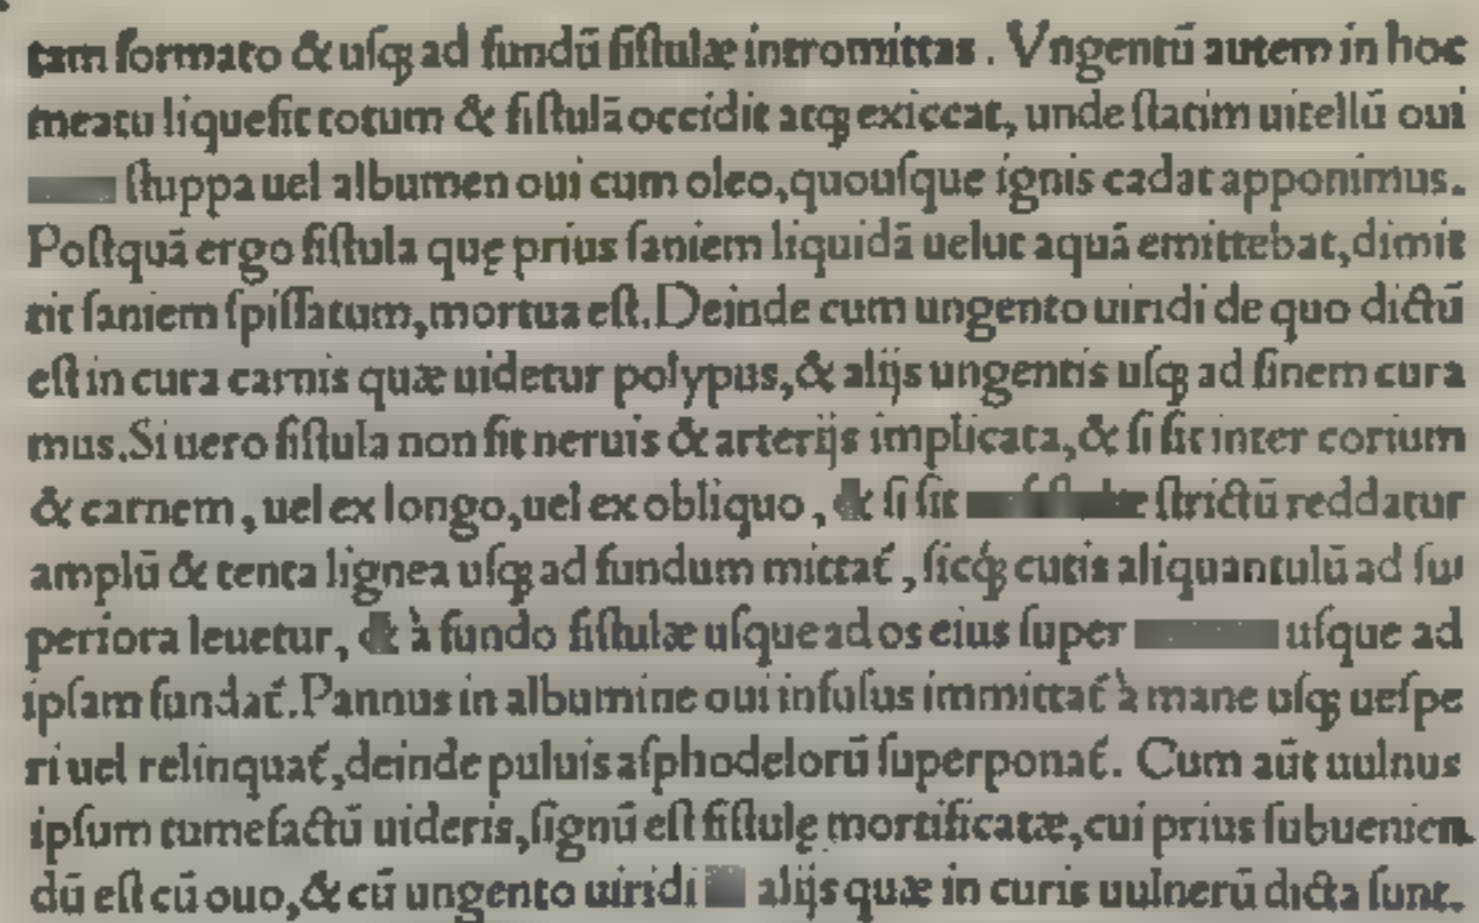 tam formato & uſqꝫ ad fundū fiſtulæ intromittas. Vngentū autem in hoc
meatu liquefit totum & fiſtulā occidit atqꝫ exiccat, unde ſtatim uitellū oui
ſtuppa uel albumen oui cum oleo, quouſque ignis cadat apponimus.
Poſtquā ergo fiſtula quę prius ſaniem liquidā uelut aquā emittebat, dimit
tit ſaniem ſpiſſatum, mortua eſt. Deinde cum ungento uiridi de quo dictū
eſt in cura carnis quæ uidetur polypus, & alijs ungentis uſqꝫ ad finem cura
mus. Si uero fiſtula non ſit neruis & arterijs implicata, & ſi ſit inter corium
& carnem, uel ex longo, uel ex obliquo, & ſi ſit ſtrictū reddatur
amplū & tenta lignea uſqꝫ ad fundum mittat᷑, ſicqꝫ́ cutis aliquantulū ad ſu
periora leuetur, & à fundo fiſtulæ uſque ad os eius ſuper uſque ad
ipſam fundat᷑. Pannus in albumine oui infuſus immittat᷑ à mane uſqꝫ ueſpe
ri uel relinquat᷑, deinde puluis aſphodelorū ſuperponat᷑. Cum aūt uulnus
ipſum tumefactū uideris, ſignū eſt fiſtulę mortificatæ, cui prius ſubuenien
dū eſt cū ouo, & cū ungento uiridi alijs quæ in curis uulnerū dicta ſunt.